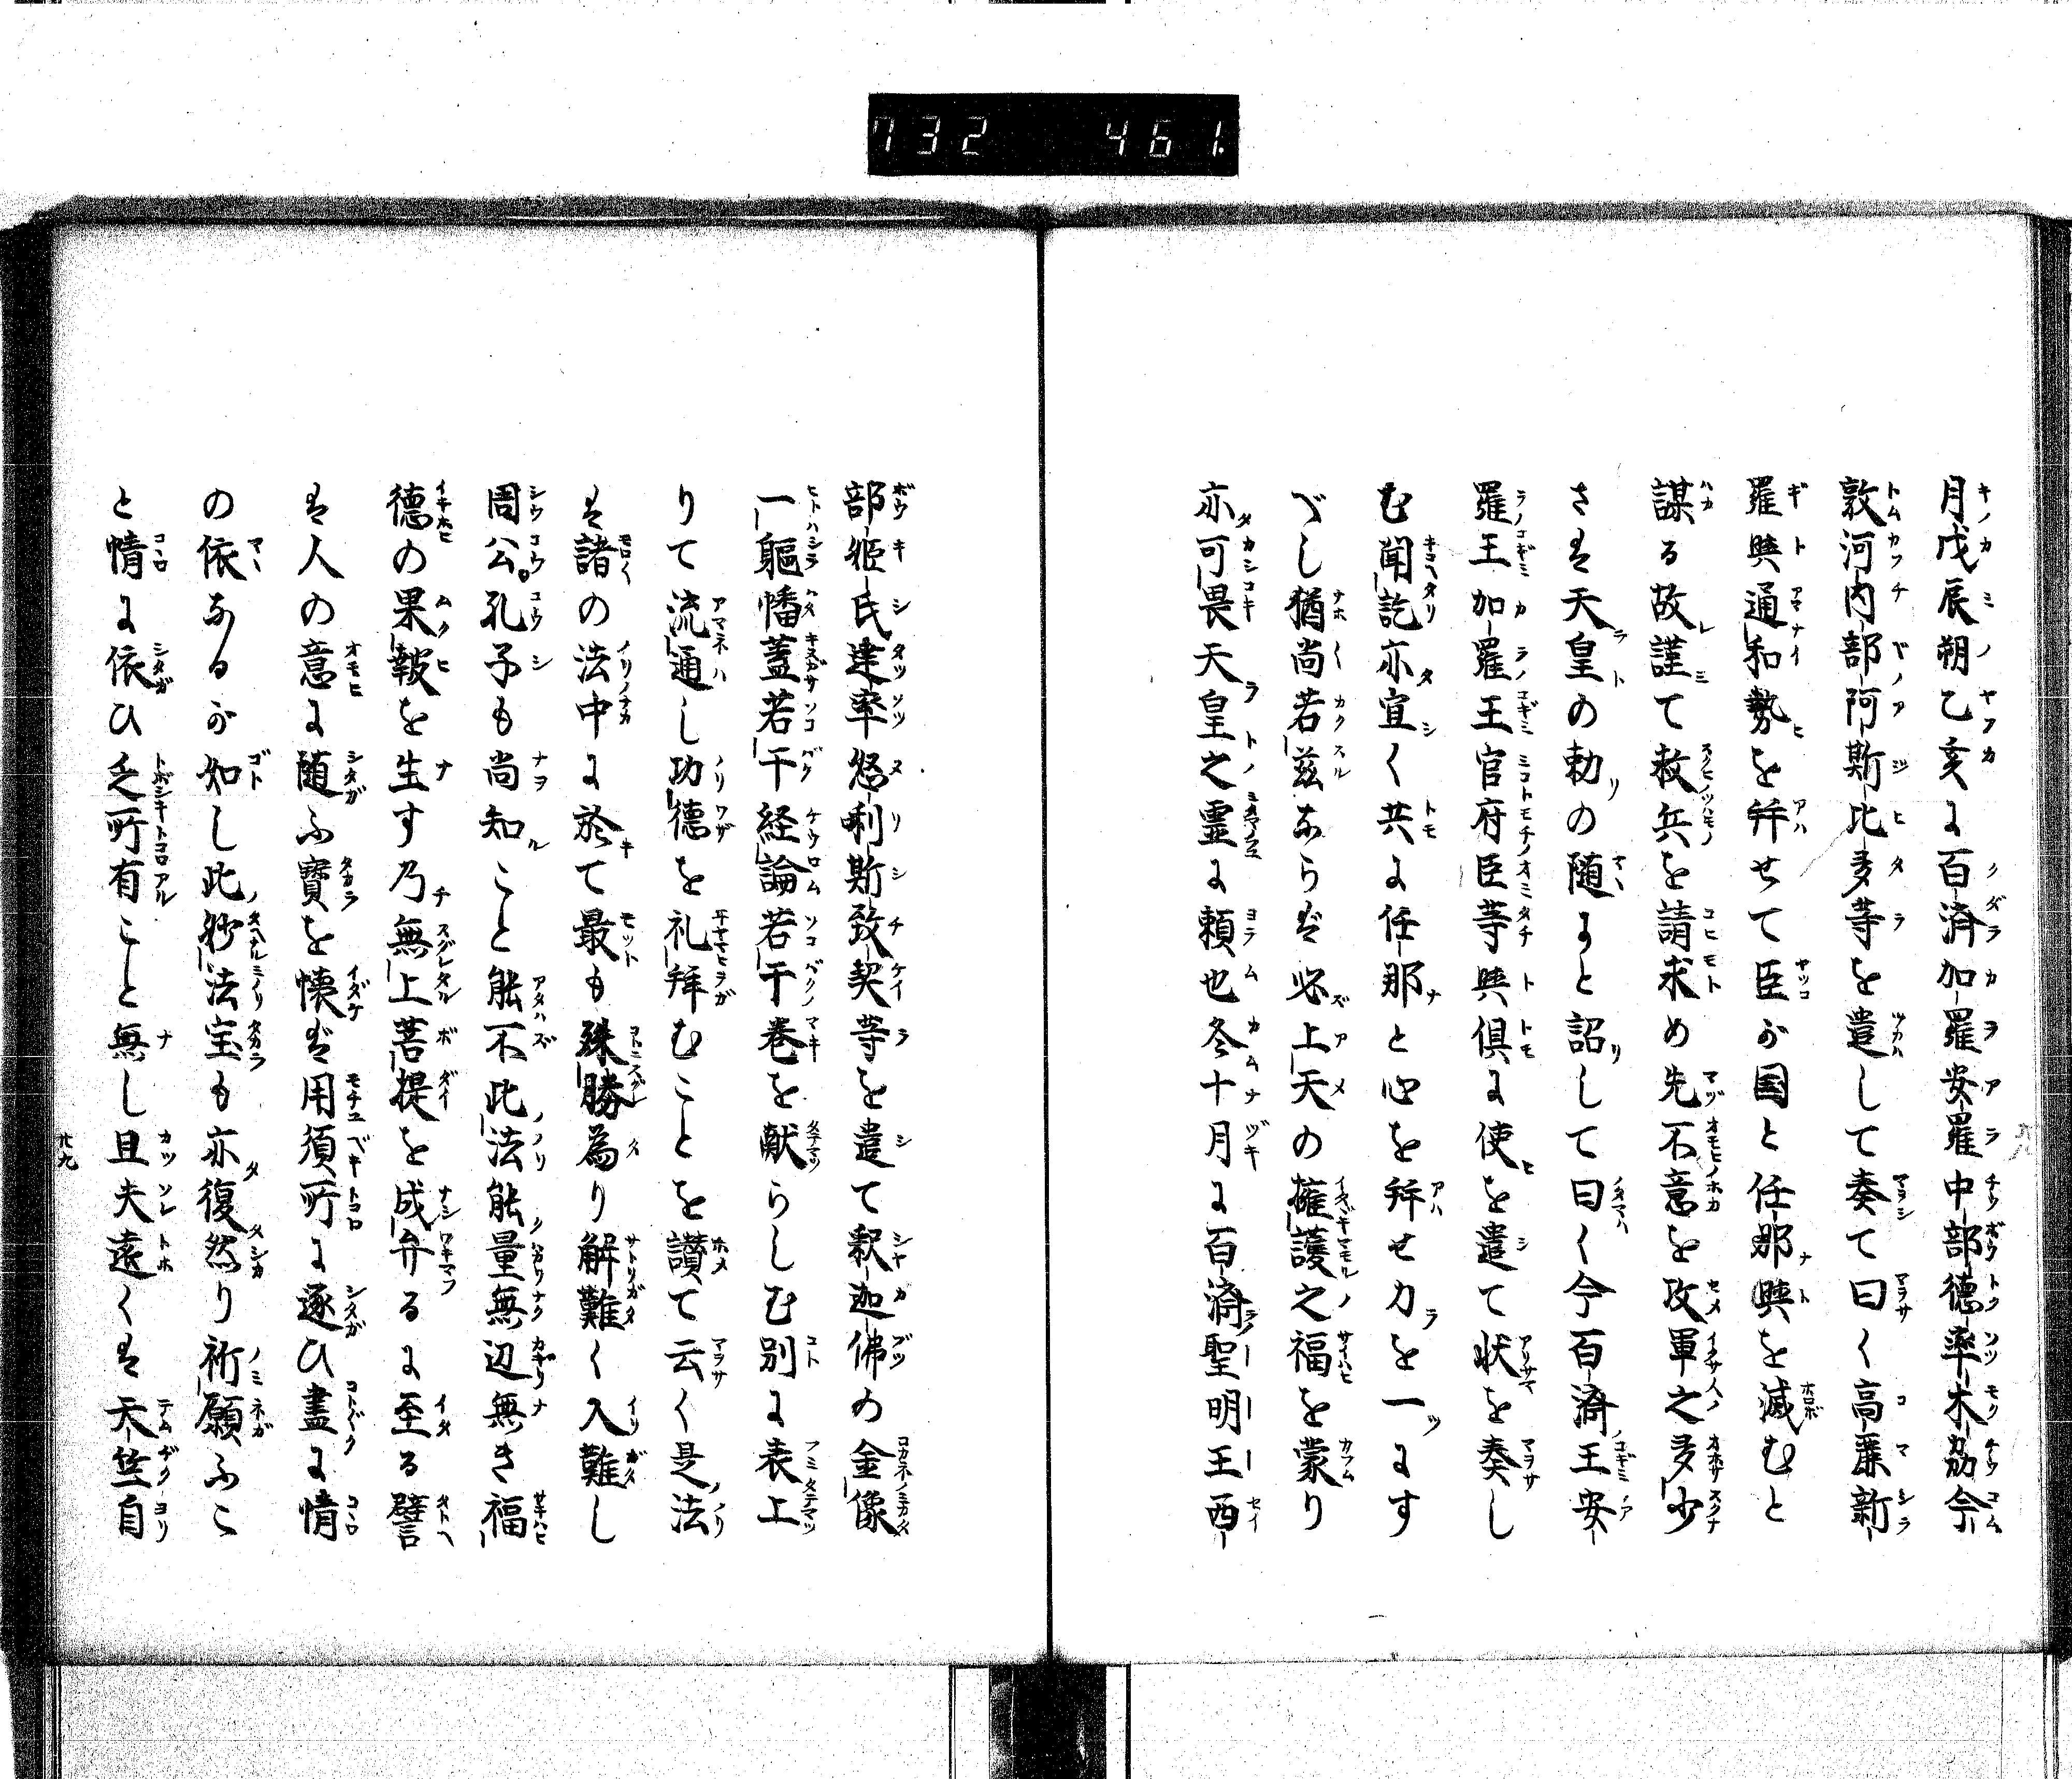 732 461.
月戊辰朔乙亥に百済加羅安羅中部徳率木刕今
敦河内部阿斯比多等を遣して奏て曰く高麗新
羅與通和勢を并せて臣が国と任那與を滅むと
謀る故謹て救兵を請求め先不意を攻軍之多少
さは天皇の勅の随まと詔して曰く今百済王安
羅王加羅王官府臣等與倶に使を遣て状を奏し
む聞訖亦宜く共に任那と心を并せ力を一にす
べし猶尚若茲ならば必上天の擁護之福を蒙り
亦可畏天皇之霊に頼也冬十月に百済聖明王西
部姫氏達率怒唎斯致契等を遣て釈迦佛の金像
一軀幡蓋若干経論若干巻を献らしむ別に表上
りて流通し功徳を礼拜むことを讃て云く是法
は諸の法中に於て最も殊勝為り解難く入難し
周公孔子も尚知こと能不此法能量無辺無き福
徳の果報を生す乃無上菩提を成弁るに至る譬
は人の意に随ふ寶を懐ば用須所に逐ひ盡に情
の依なるが如し此妙法宝も亦復然り祈願ふこ
と情に依ひ乏所有こと無し且夫遠くは天竺自
廿九